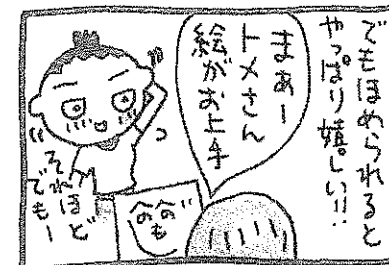 でもほめられると
やっぱり嬉しい!!
まぁー
トメさん
絵がお上手
それほど
でもー
へのへ
のも